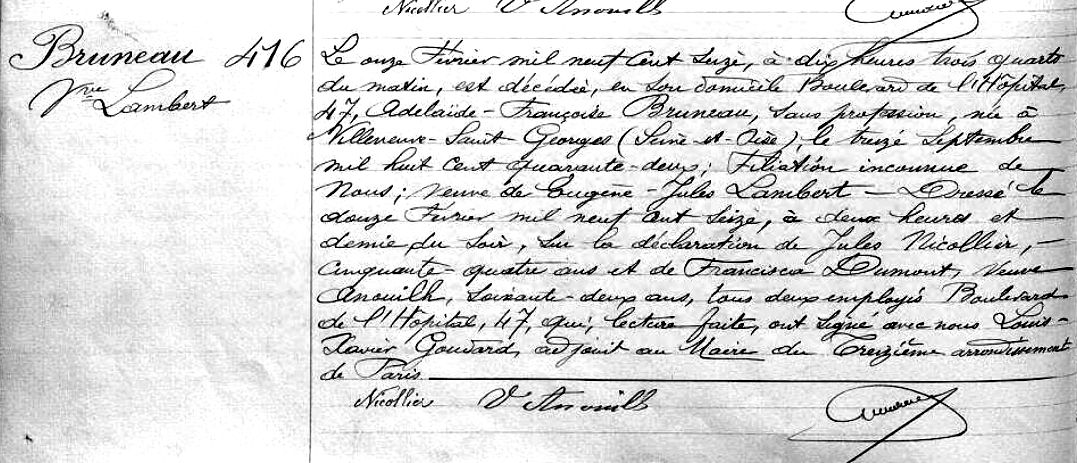 Nicollier V Anouilh
Bruneau 416
Vve Lambert
Le onze Février mil neuf cent seize, à dix heures trois quarts
du matin, est décédée, en son domicile Boulevard de l'Hôpital,
47, Adelaïde-Françoise Bruneau, sans profession, née à
Villeneuve-Saint Georges (Seine-et-Oise), le treize Septembre
mil huit cent quarante-deux; Filiation inconnue de
Nous; veuve de Eugène-Jules Lambert — Dressé le
douze Février mil neuf cent seize, à deux heures et
demie du soir, sur la déclaration de Jules Nicollier, —
cinquante-quatre ans et de Francisca Dumont, Veuve
Anouilh, soixante-deux ans, tous deux employés Boulevard
de l'Hôpital, 47, qui, lecture faite, ont signé avec nous Louis-
Xavier Gouvard, adjoint au Maire du Treizième arrondissement
de Paris.
Nicollier V Anouilh